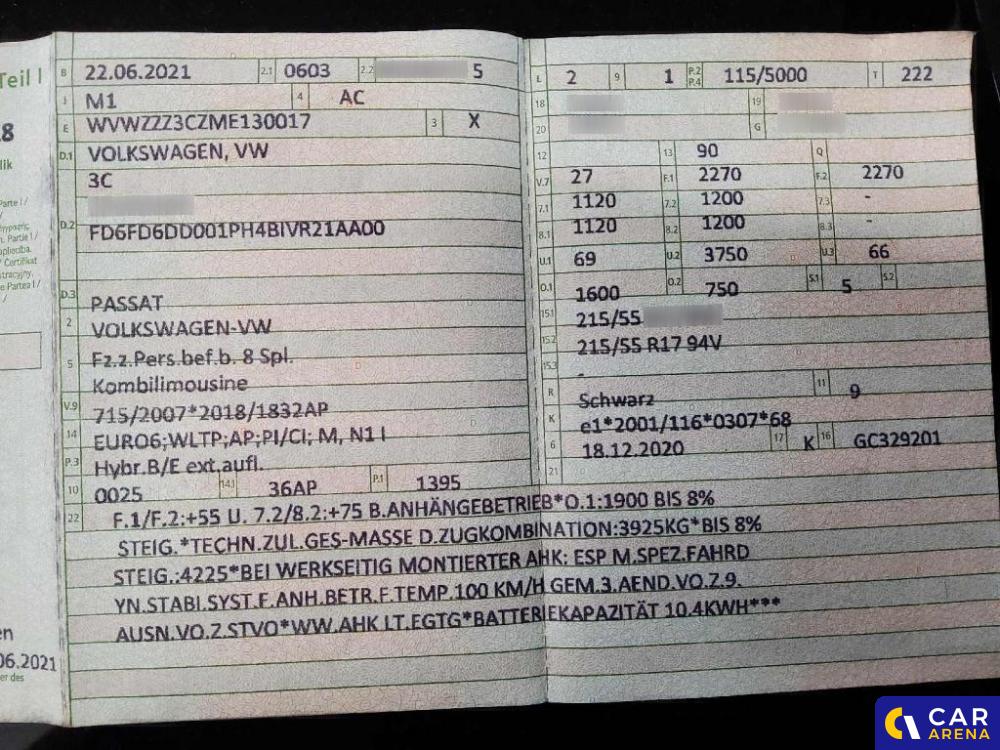 Teil I
8
lik
Parte I /
Partie I /
Certifikat
stracyjny.
Partea I /
en
06.2021
er des
B 22.06.2021 2.1 0603 2.2 5
J M1 4 AC
E WVWZZZ3CZME130017 3 X
D.1 VOLKSWAGEN, VW
3C
D.2 FD6FD6DD001PH4BIVR21AA00
D.3 PASSAT
2 VOLKSWAGEN-VW
5 Fz.z.Pers.bef.b. 8 Spl.
Kombilimousine
V.9 715/2007*2018/1832AP
14 EURO6;WLTP;AP;PI/CI; M, N1 I
P.3 Hybr.B/E ext.aufl.
10 0025 14.1 36AP P.1 1395
L 2 9 1 P.2 P.4 115/5000 T 222
18 19
20 G
12 13 90 Q
V.7 27 F.1 2270 F.2 2270
7.1 1120 7.2 1200 7.3 -
8.1 1120 8.2 1200 8.3 -
U.1 69 U.2 3750 U.3 66
O.1 1600 O.2 750 S.1 5 S.2
15.1 215/55
15.2 215/55 R17 94V
15.3 -
R Schwarz 11 9
K e1*2001/116*0307*68
6 18.12.2020 17 K 16 GC329201
21
22 F.1/F.2:+55 U. 7.2/8.2:+75 B.ANHÄNGEBETRIEB*O.1:1900 BIS 8%
STEIG.*TECHN.ZUL.GES-MASSE D.ZUGKOMBINATION:3925KG*BIS 8%
STEIG.:4225*BEI WERKSEITIG MONTIERTER AHK: ESP M.SPEZ.FAHRD
YN.STABI.SYST.F.ANH.BETR.F.TEMP.100 KM/H GEM.3.AEND.VO.Z.9.
AUSN.VO.Z.STVO*WW.AHK LT.EGTG*BATTERIEKAPAZITÄT 10.4KWH***
CAR
ARENA